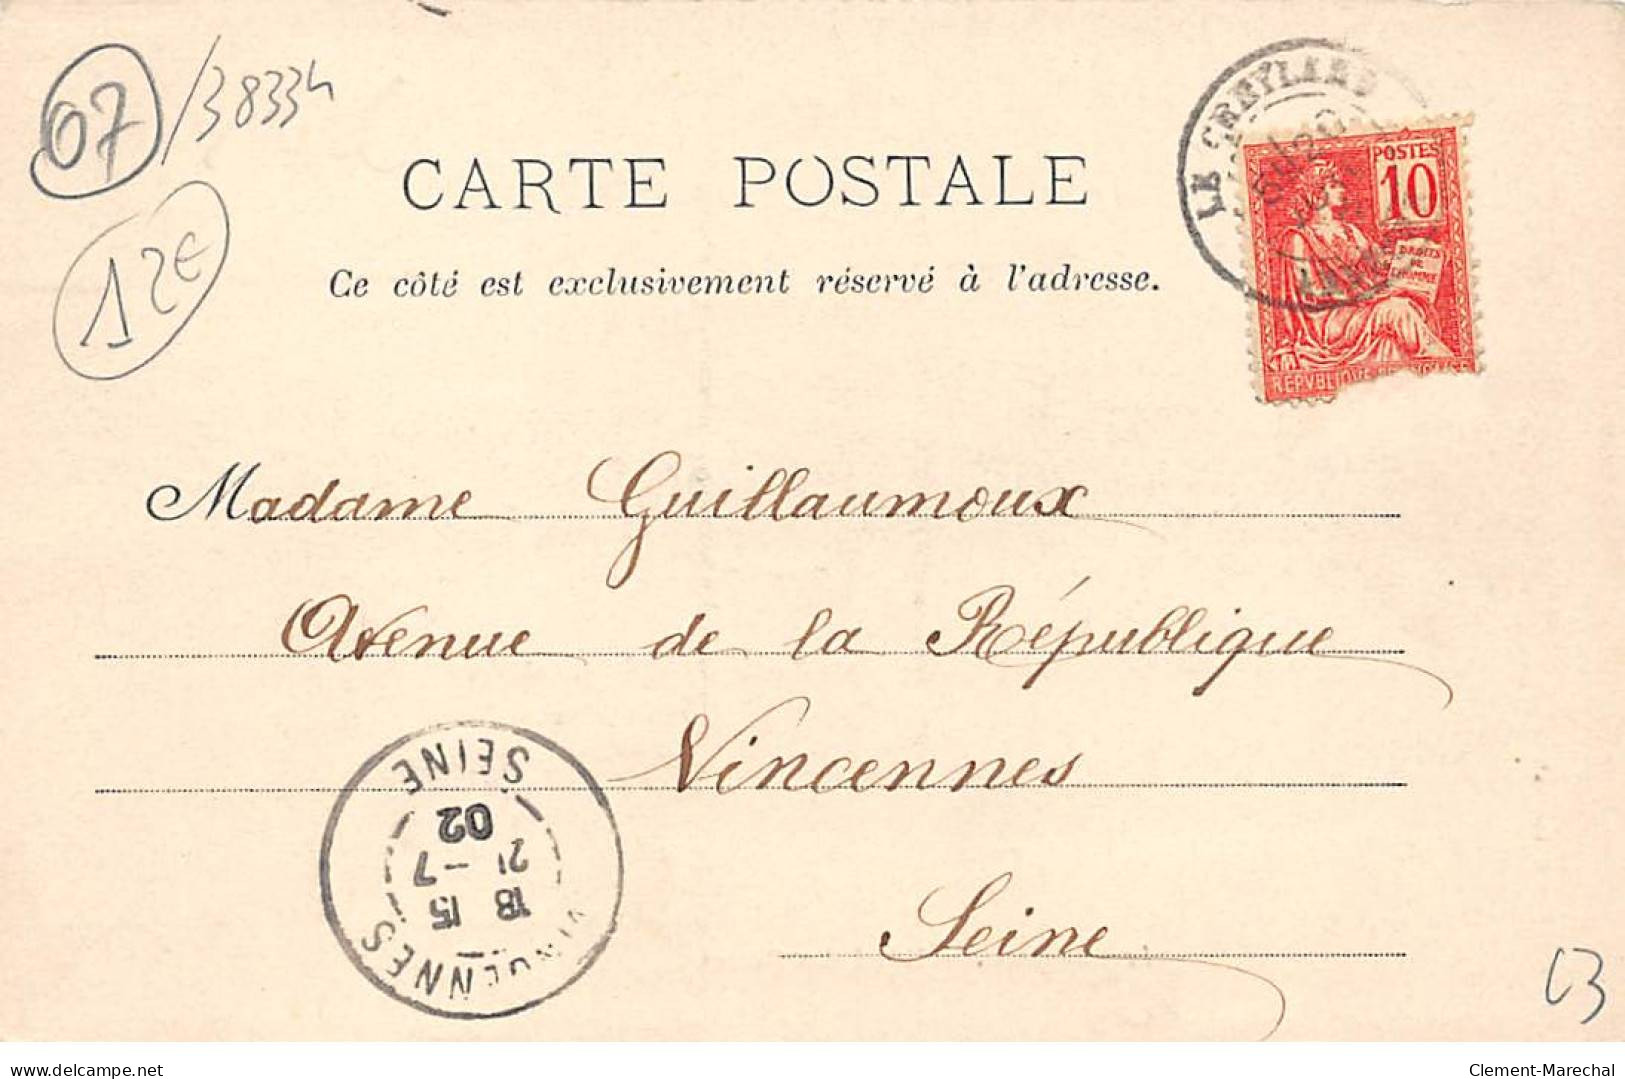 07/38334
12€
CARTE POSTALE
Ce côté est exclusivement réservé à l'adresse.
LE CHEYLARD
POSTES
10
DROITS
DE
L'HOMME
REPVBLIQUE
Madame Guillaumoux
Avenue de la République
Vincennes
Seine
VINCENNES
18 15
21 -7
02
SEINE
L3
www.delcampe.net
Clement-Marechal